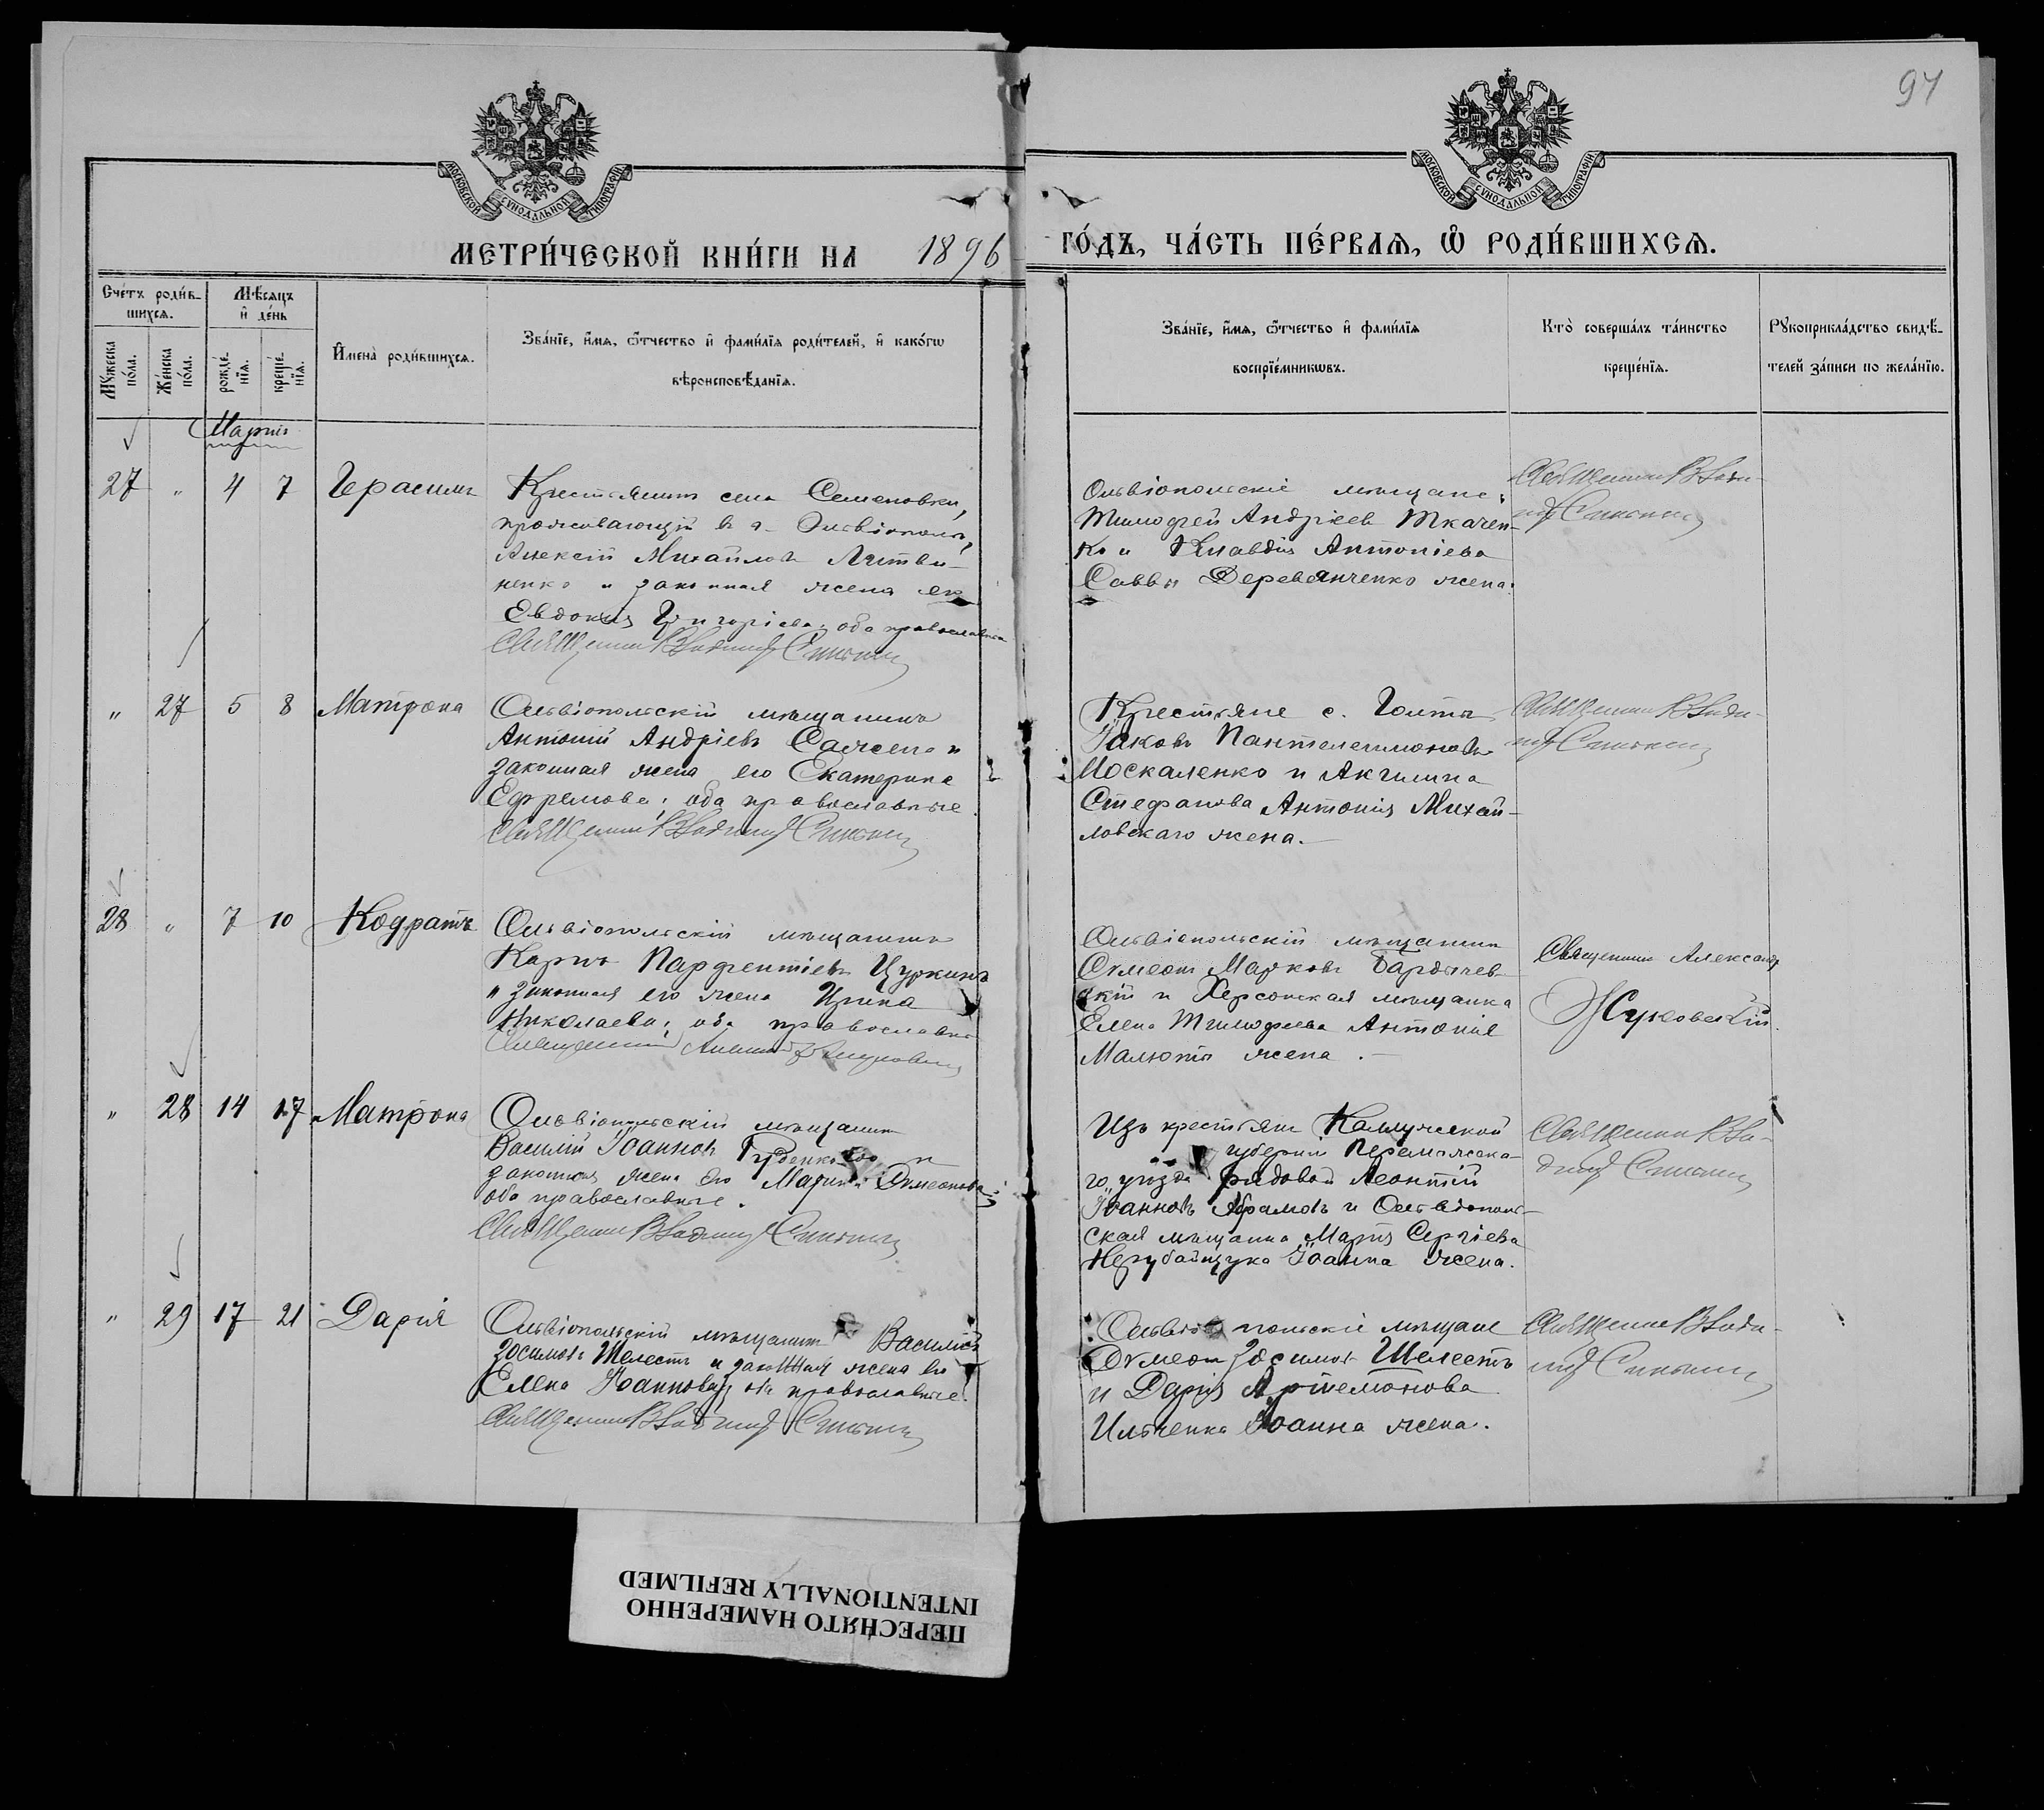 97
МОСКОВСКОЙ СѴНОДАЛЬНОЙ ТИПОГРАФІИ
МОСКОВСКОЙ СѴНОДАЛЬНОЙ ТИПОГРАФІИ
МЕТРИ́ЧЕСКОЙ КНИ́ГИ НА 1896 ГО́ДЪ, ЧА́СТЬ ПЕ́РВАѦ, Ѡ҆ РОДИ́ВШИХСѦ.
Сче́тъ роди́в-
шихсѧ.
Мꙋ́жеска
по́ла.
Же́нска
по́ла.
Мѣ́сѧцъ
и҆ де́нь
рожде́-
нїѧ.
креще́-
нїѧ.
И҆мена̀ роди́вшихсѧ.
Зва́нїе, и҆́мѧ, ѻ҆́тчество и҆ фами́лїѧ роди́телей, и҆ како́гѡ
вѣроисповѣ́данїѧ.
Зва́нїе, и҆́мѧ, ѻ҆́тчество и҆ фами́лїѧ
воспрїе́мникѡвъ.
Кто̀ соверша́лъ та́инство
креще́нїѧ.
Рꙋкоприкла́дство свидѣ́-
телей за́писи по жела́нїю.
Марта
27 " 4 7 Герасимъ
Крестьянинъ села Семеновки,
проживающій въ г. Ольвіополѣ,
Алексій Михайловъ Литви-
ненко и законная жена его
Евдокія Григоріева, оба православны
Священникъ Владимір
Ольвіопольскіе мѣщане:
Тимофей Андріевъ Ткачен-
ко и Клавдія Антоніева
Саввы Деревянченко жена.
Священникъ Влади-
мір
" 27 5 8 Матрона
Ольвіопольскій мѣщанинъ
Антоній Андріевъ и
законная жена его Екатерина
Ефремова; оба православные
Священникъ Владимір
Крестьяне с. Голты
Іаковъ Пантелеимоновъ
Москаленко и Акилина
Стефанова Антонія Михай-
ловскаго жена.
Священникъ Влади-
мір
28 " 7 10 Кодратъ
Ольвіопольскій мѣщанинъ
Карпъ Парфентіевъ Цуркинъ
и законная его жена Ирина
Николаева; оба православны
Священникъ
Ольвіопольскій мѣщанинъ
Сѵмеонъ Марковъ Бардычев-
скій и Херсонская мѣщанка
Елена Тимофеева Антонія
Малюты жена.
Священникъ Александр
Жуковскій.
" 28 14 17 Матрона
Ольвіопольскій мѣщанинъ
Василій Іоанновъ и
законная жена его Марія Сѵмеонова
оба православные.
Священникъ Владимір
Изъ крестьянъ Калужской
губерніи
го уѣзда рядовой Леонтій
Іоанновъ Абрамовъ и Ольвіополь-
ская мѣщанка Марія Сергіева
Нерубайщука Іоанна жена.
Священникъ Вла-
димір
" 29 17 21 Дарія
Ольвіопольскій мѣщанинъ Василій
Зосимовъ Шелестъ и законная жена его
Елена Іоаннова, оба православные.
Священникъ Владимір
Ольвіопольскіе мѣщане
Сѵмеонъ Зосимовъ Шелестъ
и Дарія Артемонова
Ильченка Іоанна жена.
Священникъ Влади-
мір
ПЕРЕСНЯТО НАМЕРЕННО
INTENTIONALLY REFILMED